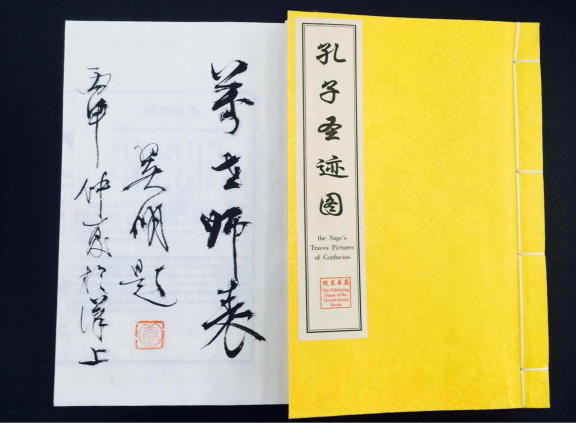 萬世師表
明题
丙申仲夏於漢上
孔子圣迹图
the Sage's
Traces Pictures
of Confucius
线装书局
The Publishing
House of the
Thread-bound
Books